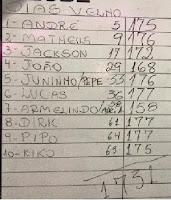 DIAS VELHO
1- ANDRÉ 5 175
2- MATHEUS 9 176
3- JACKSON 17 172
4- JOÃO 29 168
5- JUNINHO/PEPE 33 176
6- LUCAS 36 177
7- ARMELINDO 158
8- DIRK 61 177
9- PIPO 64 177
10- KIKO 63 175
1731